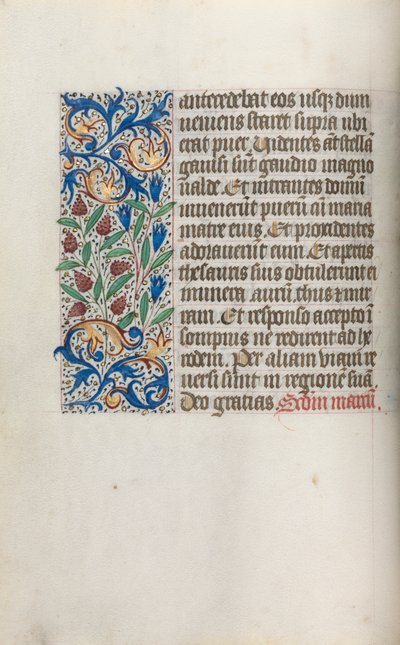 antecedebat eos usq; dum
ueniens staret supra ubi
erat puer. Uidentes aūt stellā
gauisi sūt gaudio magno
ualde. Et intrantes domū
inuenerūt puerū cū maria
matre eius. Et procidentes
adorauerūt eum. Et apertis
thesauris suis obtulerunt ei
munera aurū. thus et mir
ram. Et responso accepto ī
sompnis ne redirent ad he
rodem. Per aliam uiam re
uersi sunt in regionē suā
Deo gratias. Scdm marcū.